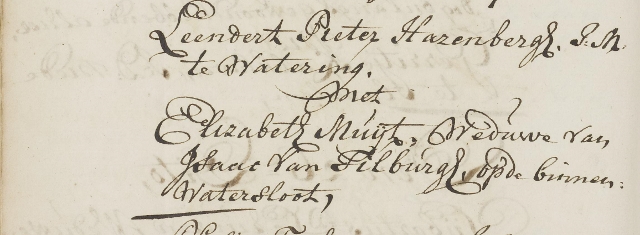 Leendert Pieter Hazenbergh. J.M.
te Watering.
Met
Elizabeth Muijt, Weduwe van
Isaac van Tilburgh, op de binnen:
Watersloot,